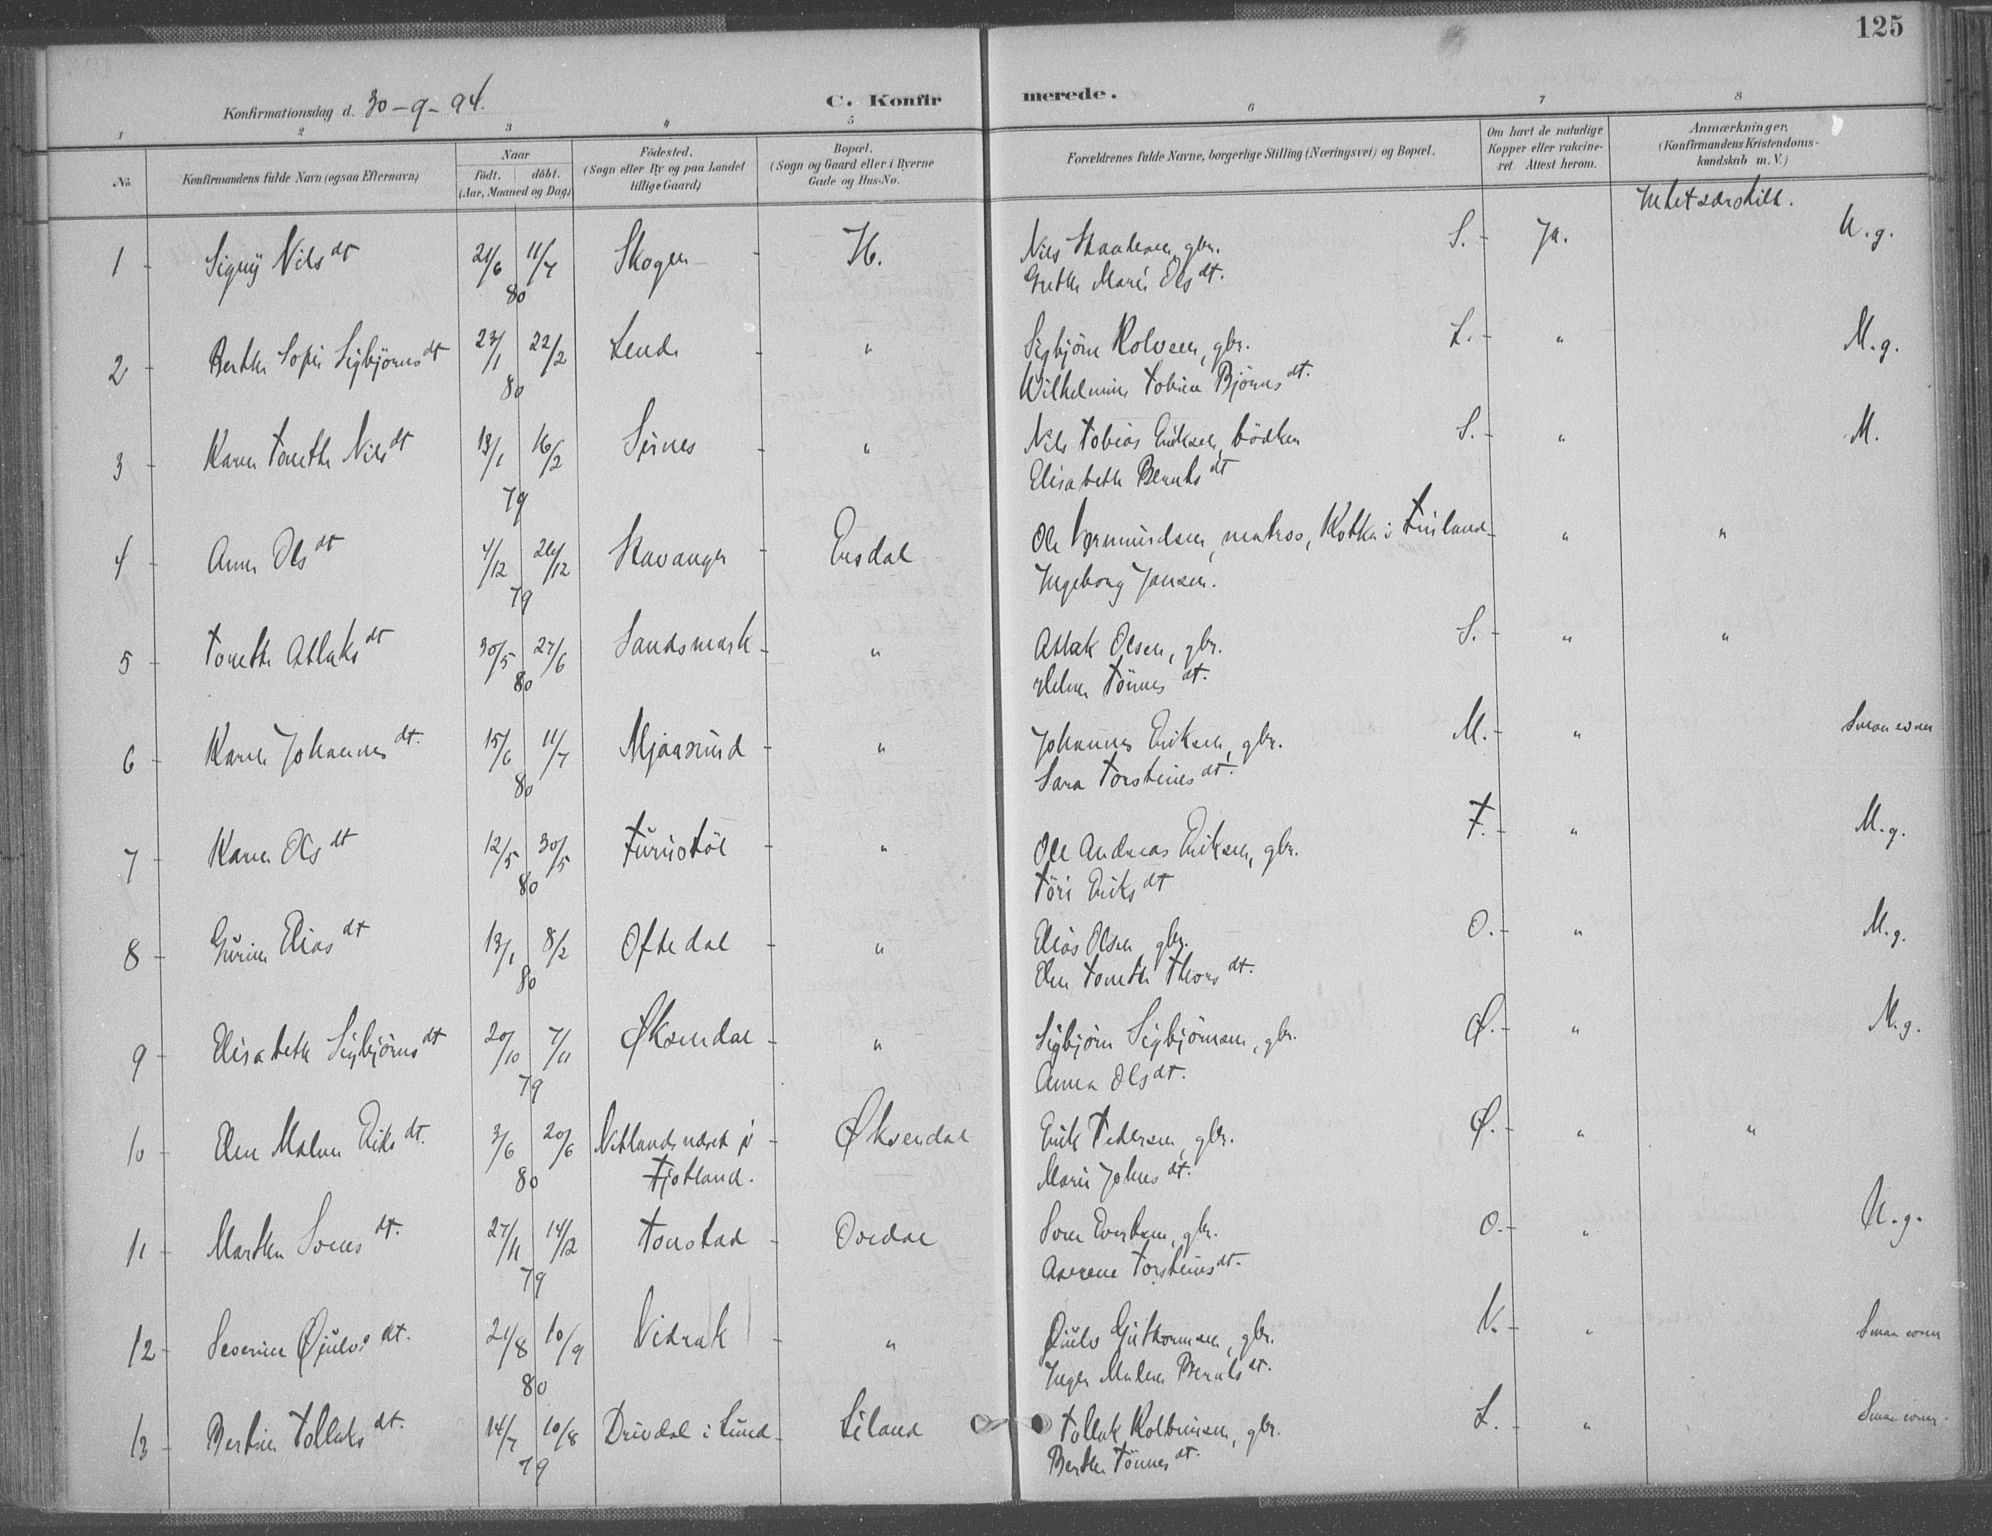 125
Konfirmationsdag d. 30-9-94.
C. Konfirmerede.
1 2 3 4 5 6 7 8
No.
Konfirmandens fulde Navn (ogsaa Efternavn)
Naar
født. døbt.
(Aar, Maaned og Dag)
Fødested.
(Sogn eller By og paa Landet
tillige Gaard)
Bopæl.
(Sogn og Gaard eller i Byerne
Gade og Hus-No.
Forældrenes fulde Navne, borgerlige Stilling (Næringsvei) og Bopæl.
Om havt de naturlige
Kopper eller vakcine-
ret. Attest herom.
Anmærkninger.
(Konfirmandens Kristendoms-
kundskab m. V.)
1 Nilsdt 21/6 11/7 80 Skogen H. Nils gbr. S. Ja. M.g.
Grethe Marie Olsdt.
2 Berthe Sofie Sigbjörnsdt 23/1 22/2 80 Lende " Sigbjörn Rolvsen, gbr. L. " M.g.
Wilhelmine Tobine Björnsdt.
3 Karen Tonette Nilsdt 13/1 16/2 79 Sirnes " Nils Tobias Eriksen, bödker S. " M.
Elisabeth Berntsdt
4 Anne Olsdt 4/12 26/12 79 Stavanger Ersdal Ole matros, Kotka i Finland " "
Ingeborg Jansen.
5 Tonette Atlaksdt 30/5 27/6 80 Sandsmark " Atlak Olsen, gbr. S. " "
Helene Tönnesdt.
6 Karen Johannesdt. 15/6 11/7 80 Mjaasund " Johannes Eriksen, gbr. M. " Smaa evner
Sara Torsteinsdt.
7 Karen Olsdt 12/5 30/5 80 Furustöl " Ole Andreas Eriksen, gbr. F. " M.g.
Töri Eriksdt
8 Gurine Eliasdt 13/1 8/2 80 Oftedal " Elias Olsen gbr. O. " M.g.
Elen Tonette Thorsdt.
9 Elisabeth Sigbjörnsdt 20/10 7/11 79 Øksendal " Sigbjörn Sigbjörnsen, gbr. Ø. " M.g.
Anna Olsdt.
10 Elen Malene Eriksdt. 3/6 20/6 80 Netlandsnæset i Øksendal Erik Pedersen, gbr. Ø. " "
Fjotland. Marie Johnsdt.
11 Marthe Sveinsdt. 27/11 14/12 79 Tonstad Ovedal gbr. O. " M.g.
Aaserene Torsteinsdt.
12 Severine Øiulvsdt. 21/8 10/9 80 Vidrak " Øiulv Guttormsen, gbr. V. " Smaa evner
Inger Malene Berntsdt.
13 Bertine Tollaksdt. 14/7 10/8 79 Drivdal i Lund Liland Tollak Kolbeinsen, gbr. L. " Smaa evner.
Berthe Tönnesdt.